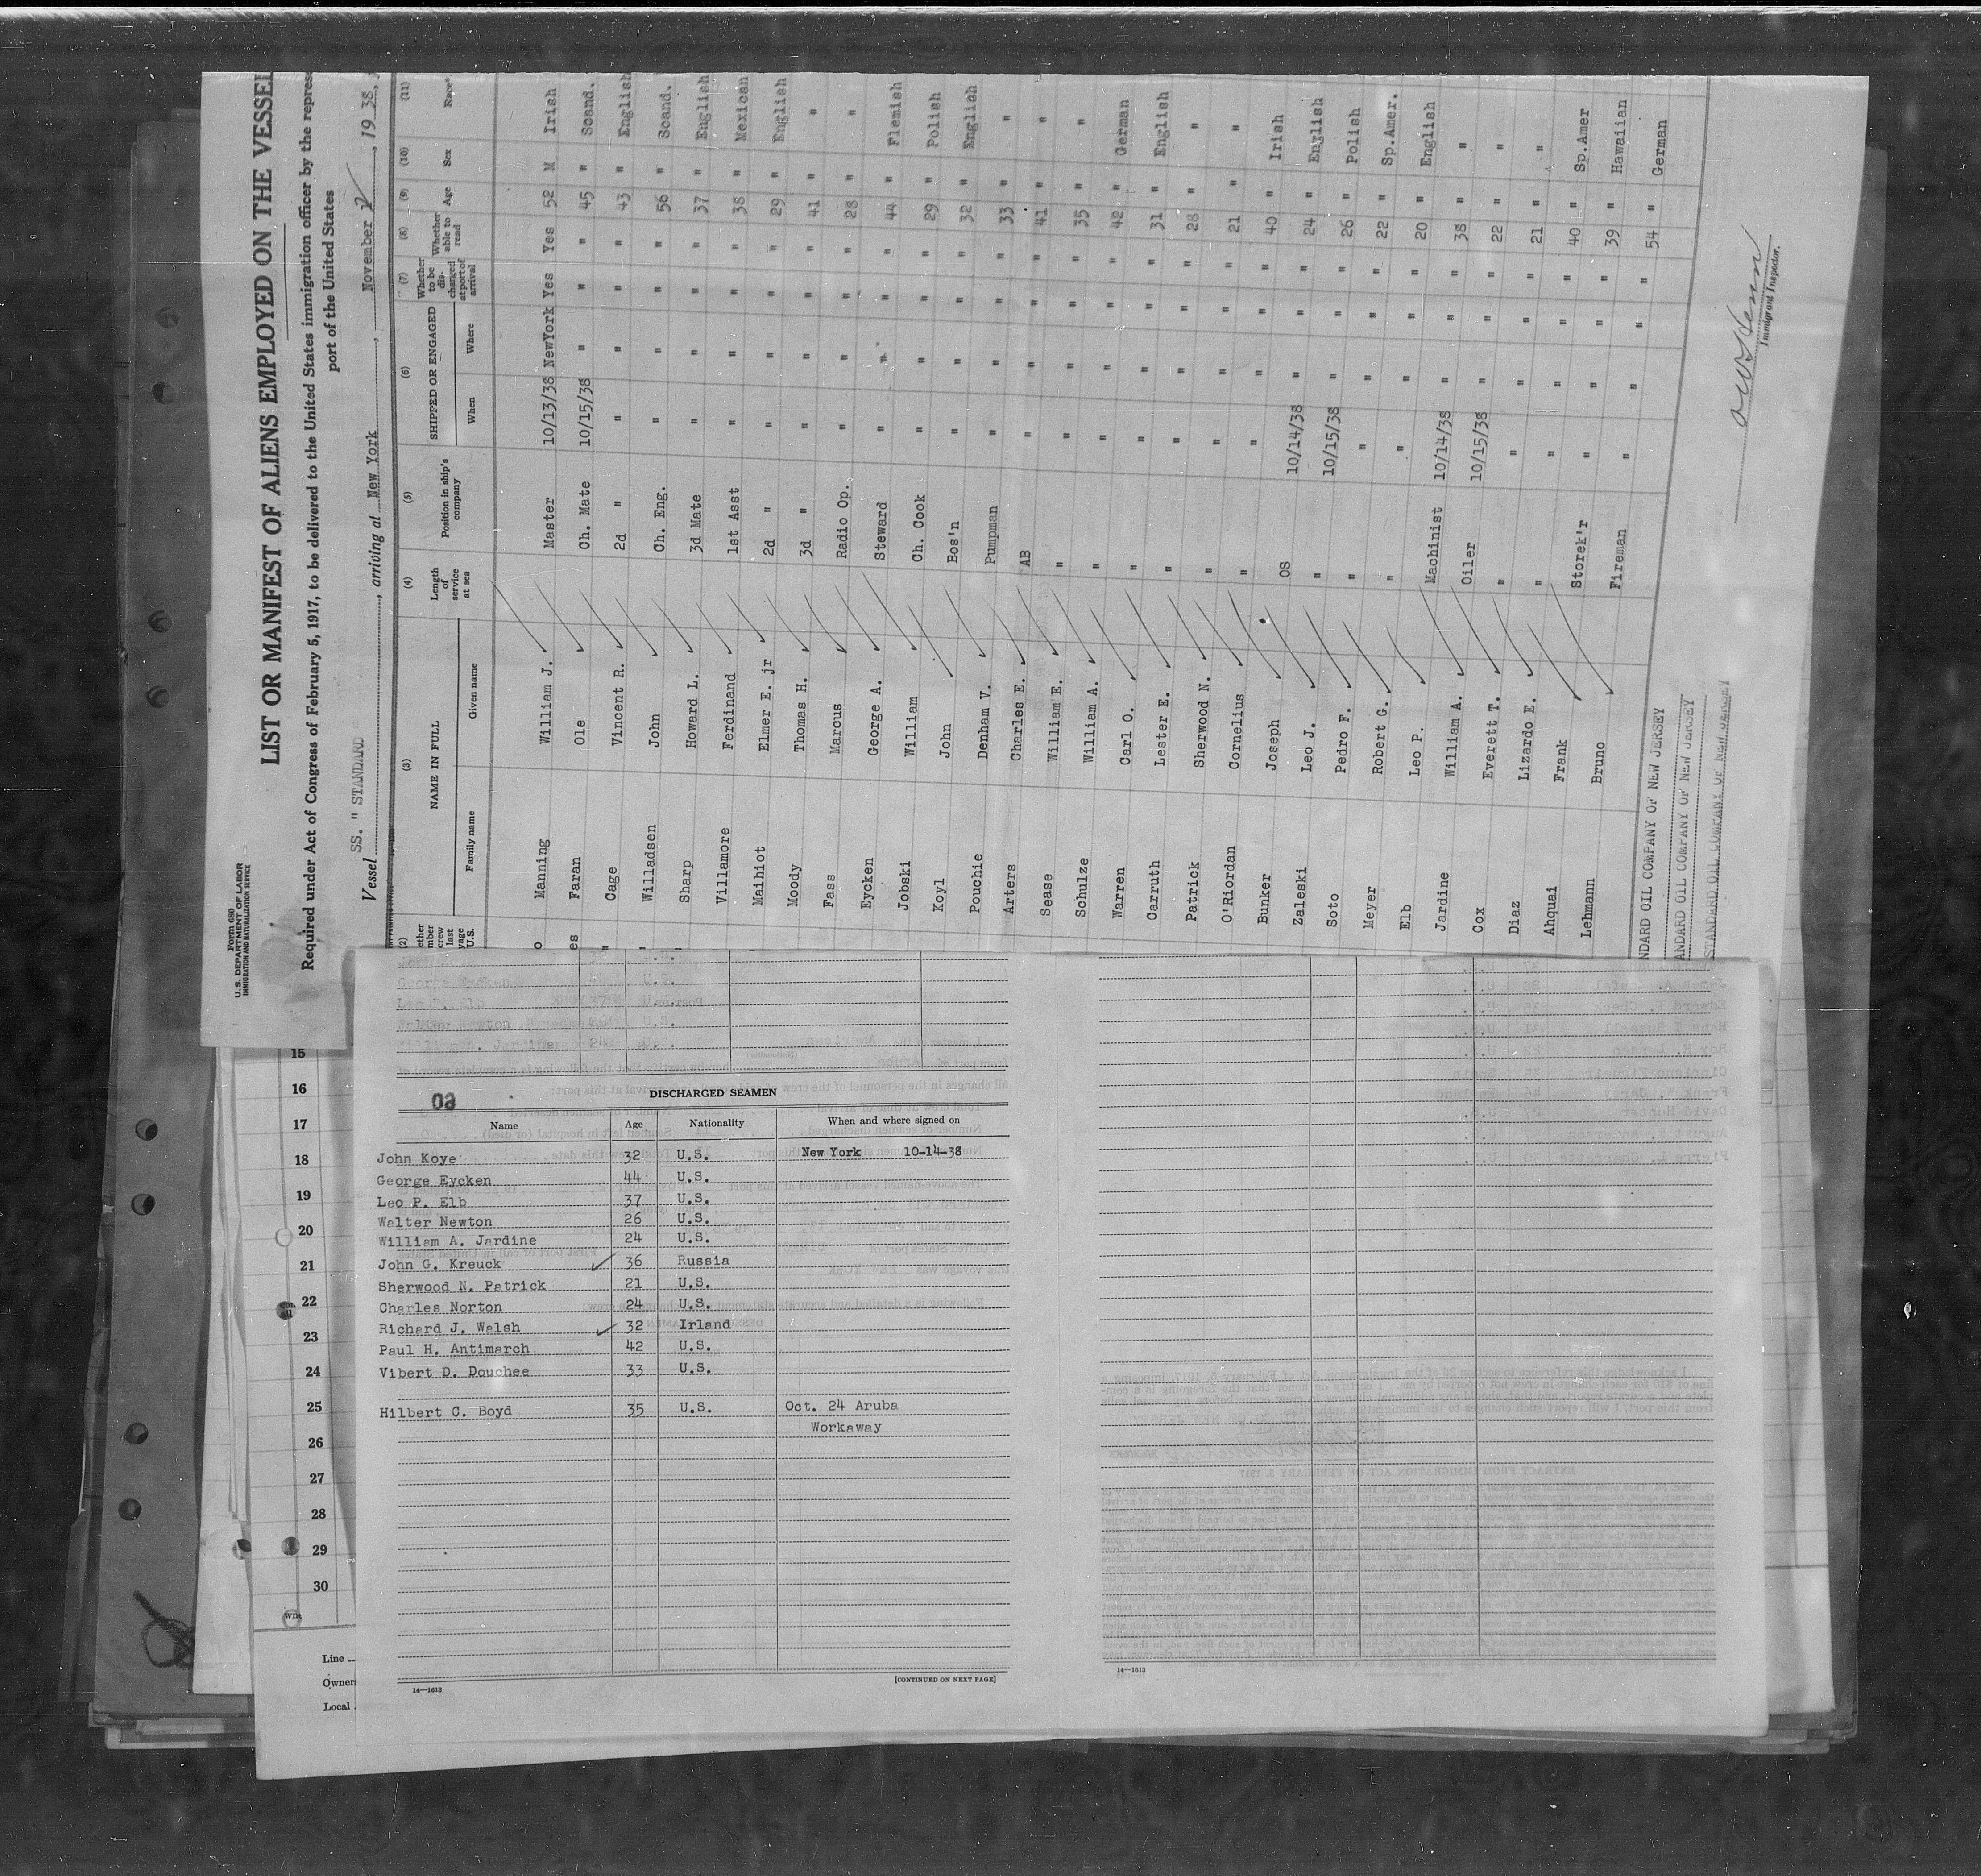 Form 680
U. S. DEPARTMENT OF LABOR
IMMIGRATION AND NATURALIZATION SERVICE
LIST OR MANIFEST OF ALIENS EMPLOYED ON THE VESSEL
Required under Act of Congress of February 5, 1917, to be delivered to the United States immigration officer by the repres
port of the United States
Vessel SS. " STANDARD , arriving at New York , November 2 , 19 38,
(2) (3) (4) (5) (6) (7) (8) (9) (10) (11)
NAME IN FULL Length of service at sea Position in ship's company SHIPPED OR ENGAGED Whether to be discharged at port of arrival Whether able to read Age Sex Race*
Family name Given name When Where
Manning William J. Master 10/13/38 NewYork Yes Yes 52 M Irish
Faran Ole Ch. Mate 10/15/38 " " " 45 " Scand.
Cage Vincent R. 2d " " " " " 43 " English
Willadsen John Ch. Eng. " " " " 56 " Scand.
Sharp Howard L. 3d Mate " " " " 37 " English
Villamore Ferdinand 1st Asst " " " " 38 " Mexican
Maihiot Elmer E. jr 2d " " " " " 29 " English
Moody Thomas H. 3d " " " " " 41 " "
Fass Marcus Radio Op. " " " " 28 " "
Eycken George A. Steward " " " " 44 " Flemish
Jobski William Ch. Cook " " " " 29 " Polish
Koyl John Bos'n " " " " 32 " English
Pouchie Denham V. Pumpman " " " " 33 " "
Arters Charles E. AB " " " " 41 " "
Sease William E. " " " " " 35 " "
Schulze William A. " " " " " 42 " German
Warren Carl O. " " " " " 31 " English
Carruth Lester E. " " " " " 28 " "
Patrick Sherwood N. " " " " " 21 " "
O'Riordan Cornelius " " " " " 40 " Irish
Bunker Joseph OS 10/14/38 " " " 24 " English
Zaleski Leo J. " 10/15/38 " " " 26 " Polish
Soto Pedro F. " " " " " 22 " Sp.Amer.
Meyer Robert G. " " " " " 20 " English
Elb Leo P. Machinist 10/14/38 " " " 38 " "
Jardine William A. Oiler 10/15/38 " " " 22 " "
Cox Everett T. " " " " " 21 " "
Diaz Lizardo E. " " " " " 40 " Sp.Amer
Ahquai Frank Storek'r " " " " 39 " Hawaiian
Lehmann Bruno Fireman " " " " 54 " German
NDARD OIL COMPANY OF NEW JERSEY
ANDARD OIL COMPANY OF NEW JERSEY
STANDARD OIL COMPANY OF NEW JERSEY
Immigrant Inspector.
15
16
17
18
19
20
21
22
23
24
25
26
27
28
29
30
Line
Owner
Local
DISCHARGED SEAMEN
Name Age Nationality When and where signed on
John Koye 32 U.S. New York 10-14-38
George Eycken 44 U.S.
Leo P. Elb 37 U.S.
Walter Newton 26 U.S.
William A. Jardine 24 U.S.
John G. Kreuck 36 Russia
Sherwood N. Patrick 21 U.S.
Charles Norton 24 U.S.
Richard J. Welsh 32 Irland
Paul H. Antimarch 42 U.S.
Vibert D. Douchee 33 U.S.
Hilbert C. Boyd 35 U.S. Oct. 24 Aruba
Workaway
14—1613 [CONTINUED ON NEXT PAGE]
14—1613